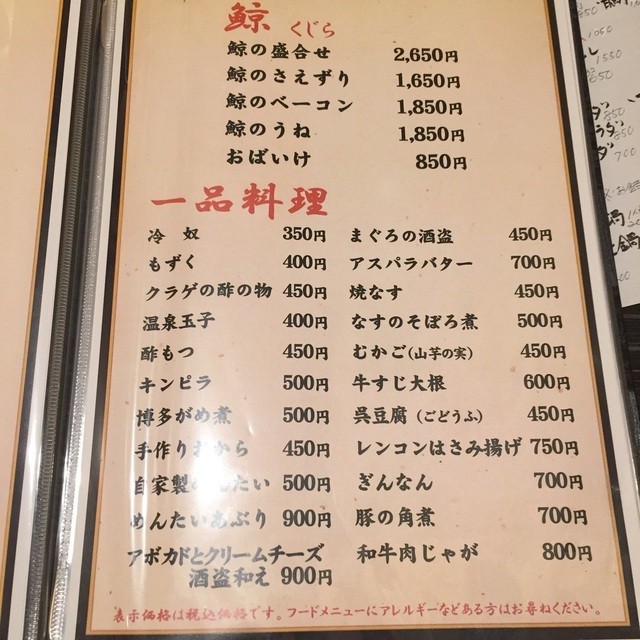 鯨 くじら
鯨の盛合せ 2,650円
鯨のさえずり 1,650円
鯨のベーコン 1,850円
鯨のうね 1,850円
おばいけ 850円
一品料理
冷 奴 350円
もずく 400円
クラゲの酢の物 450円
温泉玉子 400円
酢もつ 450円
キンピラ 500円
博多がめ煮 500円
手作りおから 450円
自家製めんたい 500円
めんたいあぶり 900円
アボカドとクリームチーズ
酒盗和え 900円
まぐろの酒盗 450円
アスパラバター 700円
焼なす 450円
なすのそぼろ煮 500円
むかご(山芋の実) 450円
牛すじ大根 600円
呉豆腐(ごどうふ) 450円
レンコンはさみ揚げ 750円
ぎんなん 700円
豚の角煮 700円
和牛肉じゃが 800円
表示価格は税込価格です。フードメニューにアレルギーなどある方はお尋ねください。